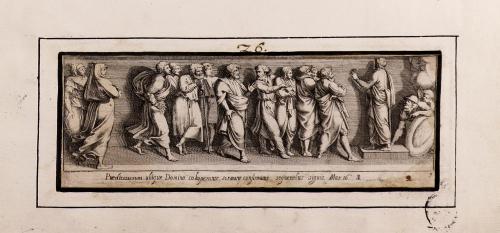 26.
Prædicauerunt ubique Domino cooperante, sermone confirmante sequentibus signis Mar 16